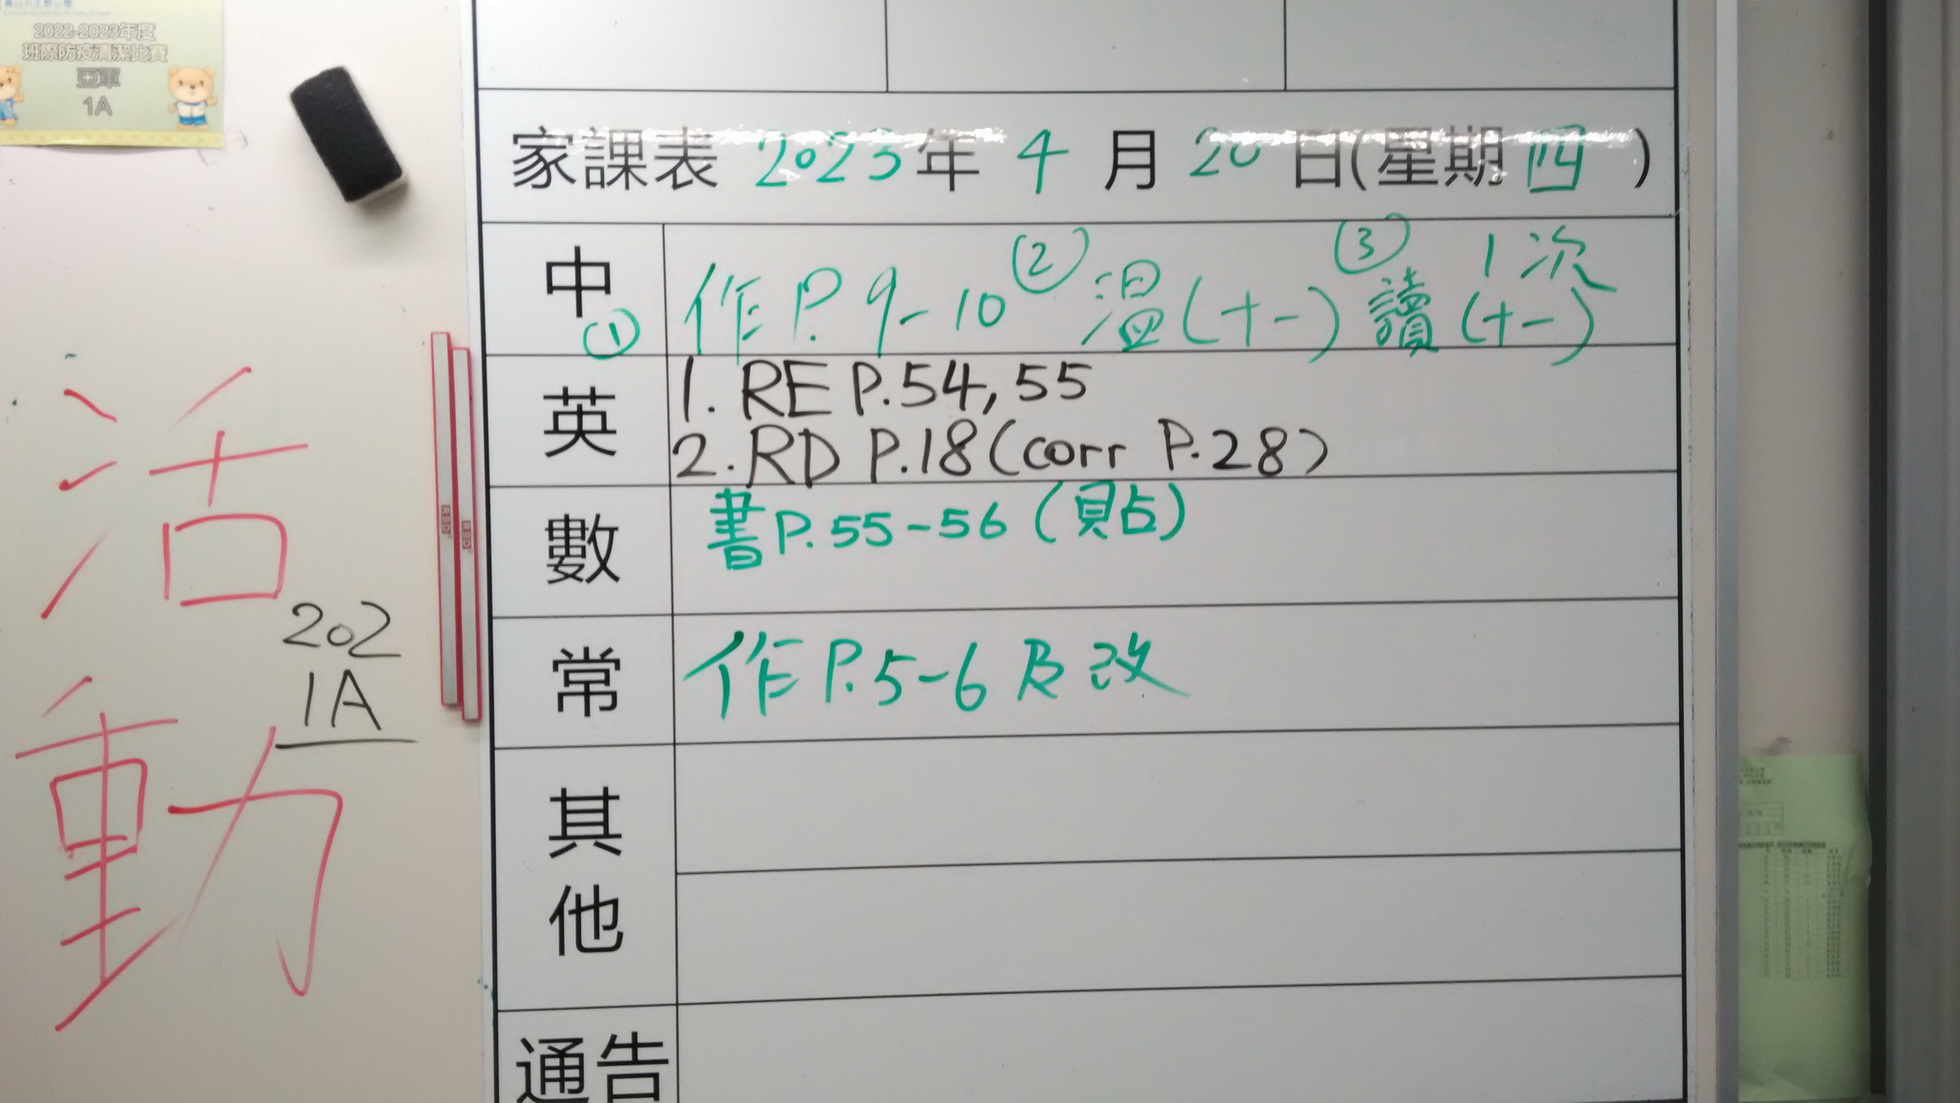 2022-2023年度
班際防疫清潔比賽
亞軍
1A
家課表 2023年 4 月 20 日(星期 四 )
中 ① 作 P. 9-10 ② 温(十一) ③ 讀(十一) 1次
英 1. RE P.54, 55
2. RD P.18 (corr P.28)
數 書 P. 55-56 (貼)
常 作 P. 5-6 及改
其他
通告
活動
202
1A